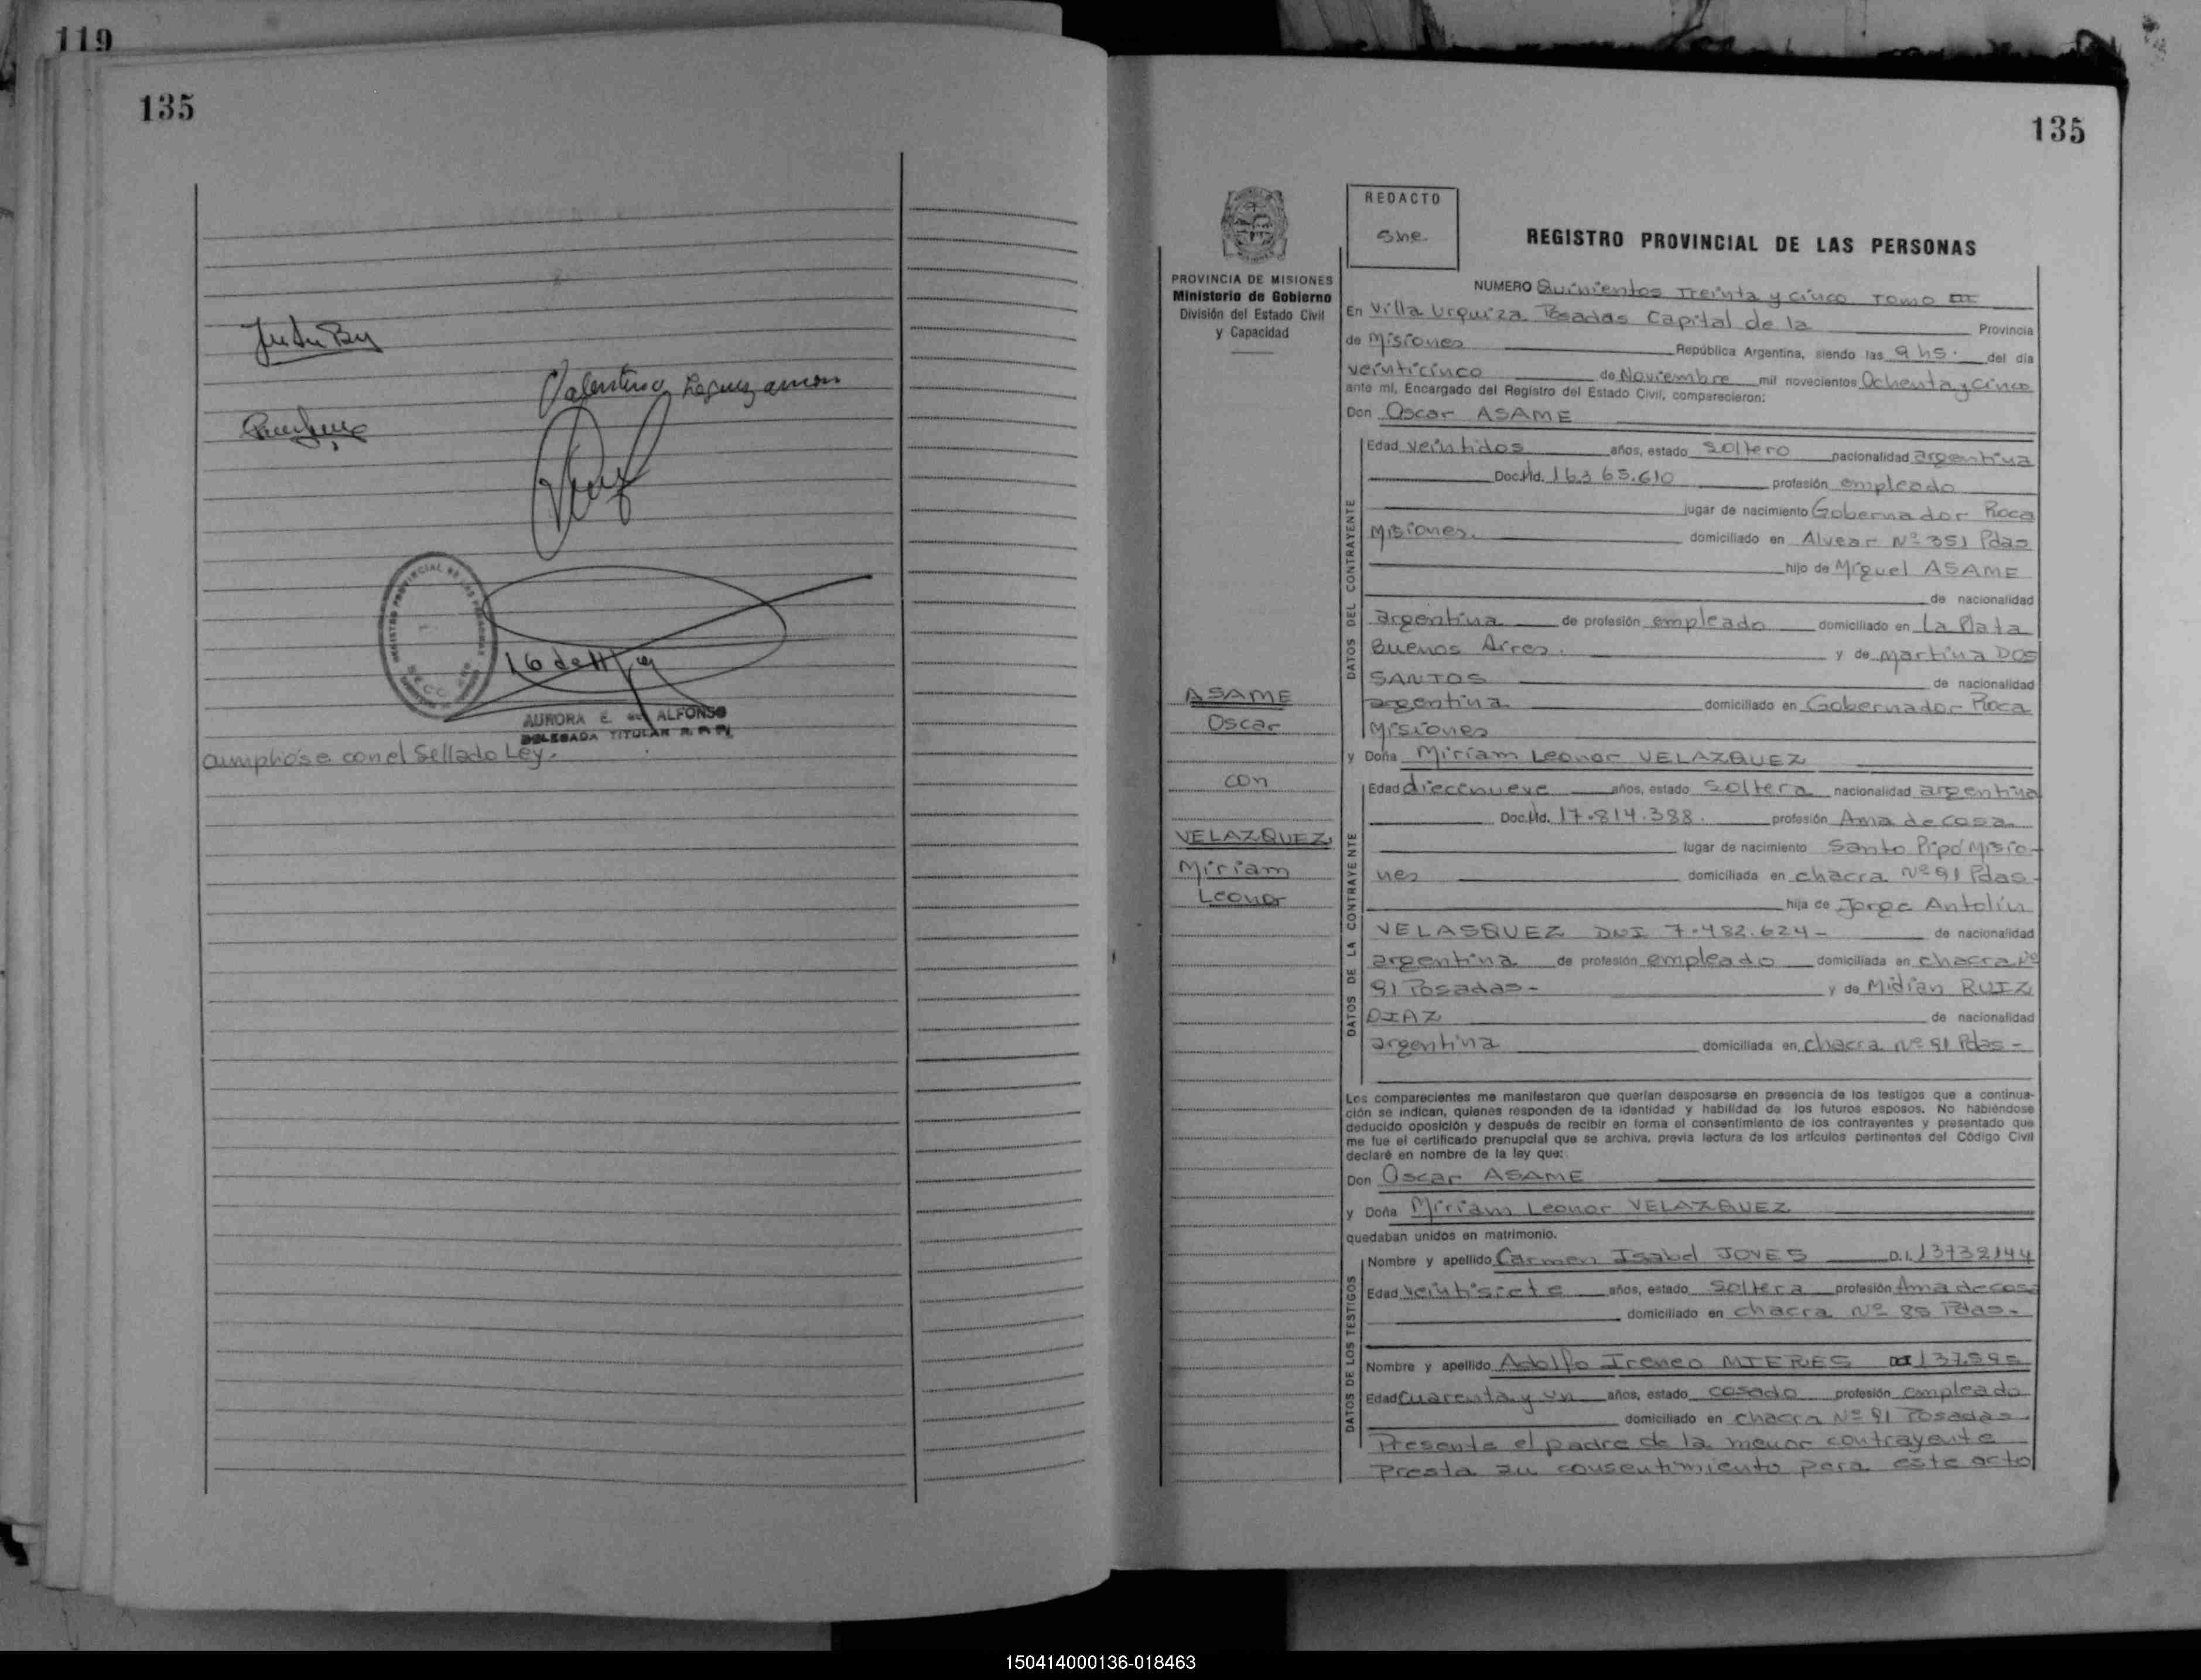 119
135
Valentina Leguizamon
AURORA E. de ALFONSO
DELEGADA TITULAR R. P. P.
cumplióse con el Sellado Ley.
135
REDACTO
She.
REGISTRO PROVINCIAL DE LAS PERSONAS
PROVINCIA DE MISIONES
Ministerio de Gobierno
División del Estado Civil
y Capacidad
NUMERO Quinientos Treinta y cinco TOMO III
En Villa Urquiza Posadas Capital de la Provincia
de Misiones República Argentina, siendo las 9 hs. del día
veinticinco de Noviembre mil novecientos Ochenta y Cinco
ante mí, Encargado del Registro del Estado Civil, comparecieron:
Don Oscar ASAME
DATOS DEL CONTRAYENTE
Edad veintidos años, estado soltero nacionalidad argentina
Doc.Nd. 16.365.610 profesión empleado
lugar de nacimiento Gobernador Roca
Misiones. domiciliado en Alvear Nº 351 Pdas
hijo de Miguel ASAME
de nacionalidad
argentina de profesión empleado domiciliado en La Plata
Buenos Aires. y de Martina DOS
SANTOS de nacionalidad
argentina domiciliado en Gobernador Roca
Misiones
ASAME
Oscar
con
VELAZQUEZ
Miriam
Leonor
y Doña Miriam Leonor VELAZQUEZ
DATOS DE LA CONTRAYENTE
Edad diecenueve años, estado soltera nacionalidad argentina
Doc.Nd. 17.814.388. profesión Ama de casa
lugar de nacimiento Santo Pipó Misio-
nes domiciliada en chacra Nº 91 Pdas-
hija de Jorge Antolín
VELASQUEZ DNI 7.482.624- de nacionalidad
argentina de profesión empleado domiciliada en chacra Nº
91 Posadas- y de Midian RUIZ
DIAZ de nacionalidad
argentina domiciliada en chacra Nº 91 Pdas-
Los comparecientes me manifestaron que querían desposarse en presencia de los testigos que a continua-
ción se indican, quienes responden de la identidad y habilidad de los futuros esposos. No habiéndose
deducido oposición y después de recibir en forma el consentimiento de los contrayentes y presentado que
me fue el certificado prenupcial que se archiva, previa lectura de los artículos pertinentes del Código Civil
declaré en nombre de la ley que:
Don Oscar ASAME
y Doña Miriam Leonor VELAZQUEZ
quedaban unidos en matrimonio.
DATOS DE LOS TESTIGOS
Nombre y apellido Carmen Isabel JOVES D.I. 13732144
Edad veintisiete años, estado soltera profesión Ama de casa
domiciliado en chacra Nº 85 Pdas-
Nombre y apellido Adolfo Ireneo MIERES
Edad cuarenta y un años, estado casado profesión empleado
domiciliado en chacra Nº 91 Posadas.
Presente el padre de la menor contrayente
Presta su consentimiento para este acto
150414000136-018463